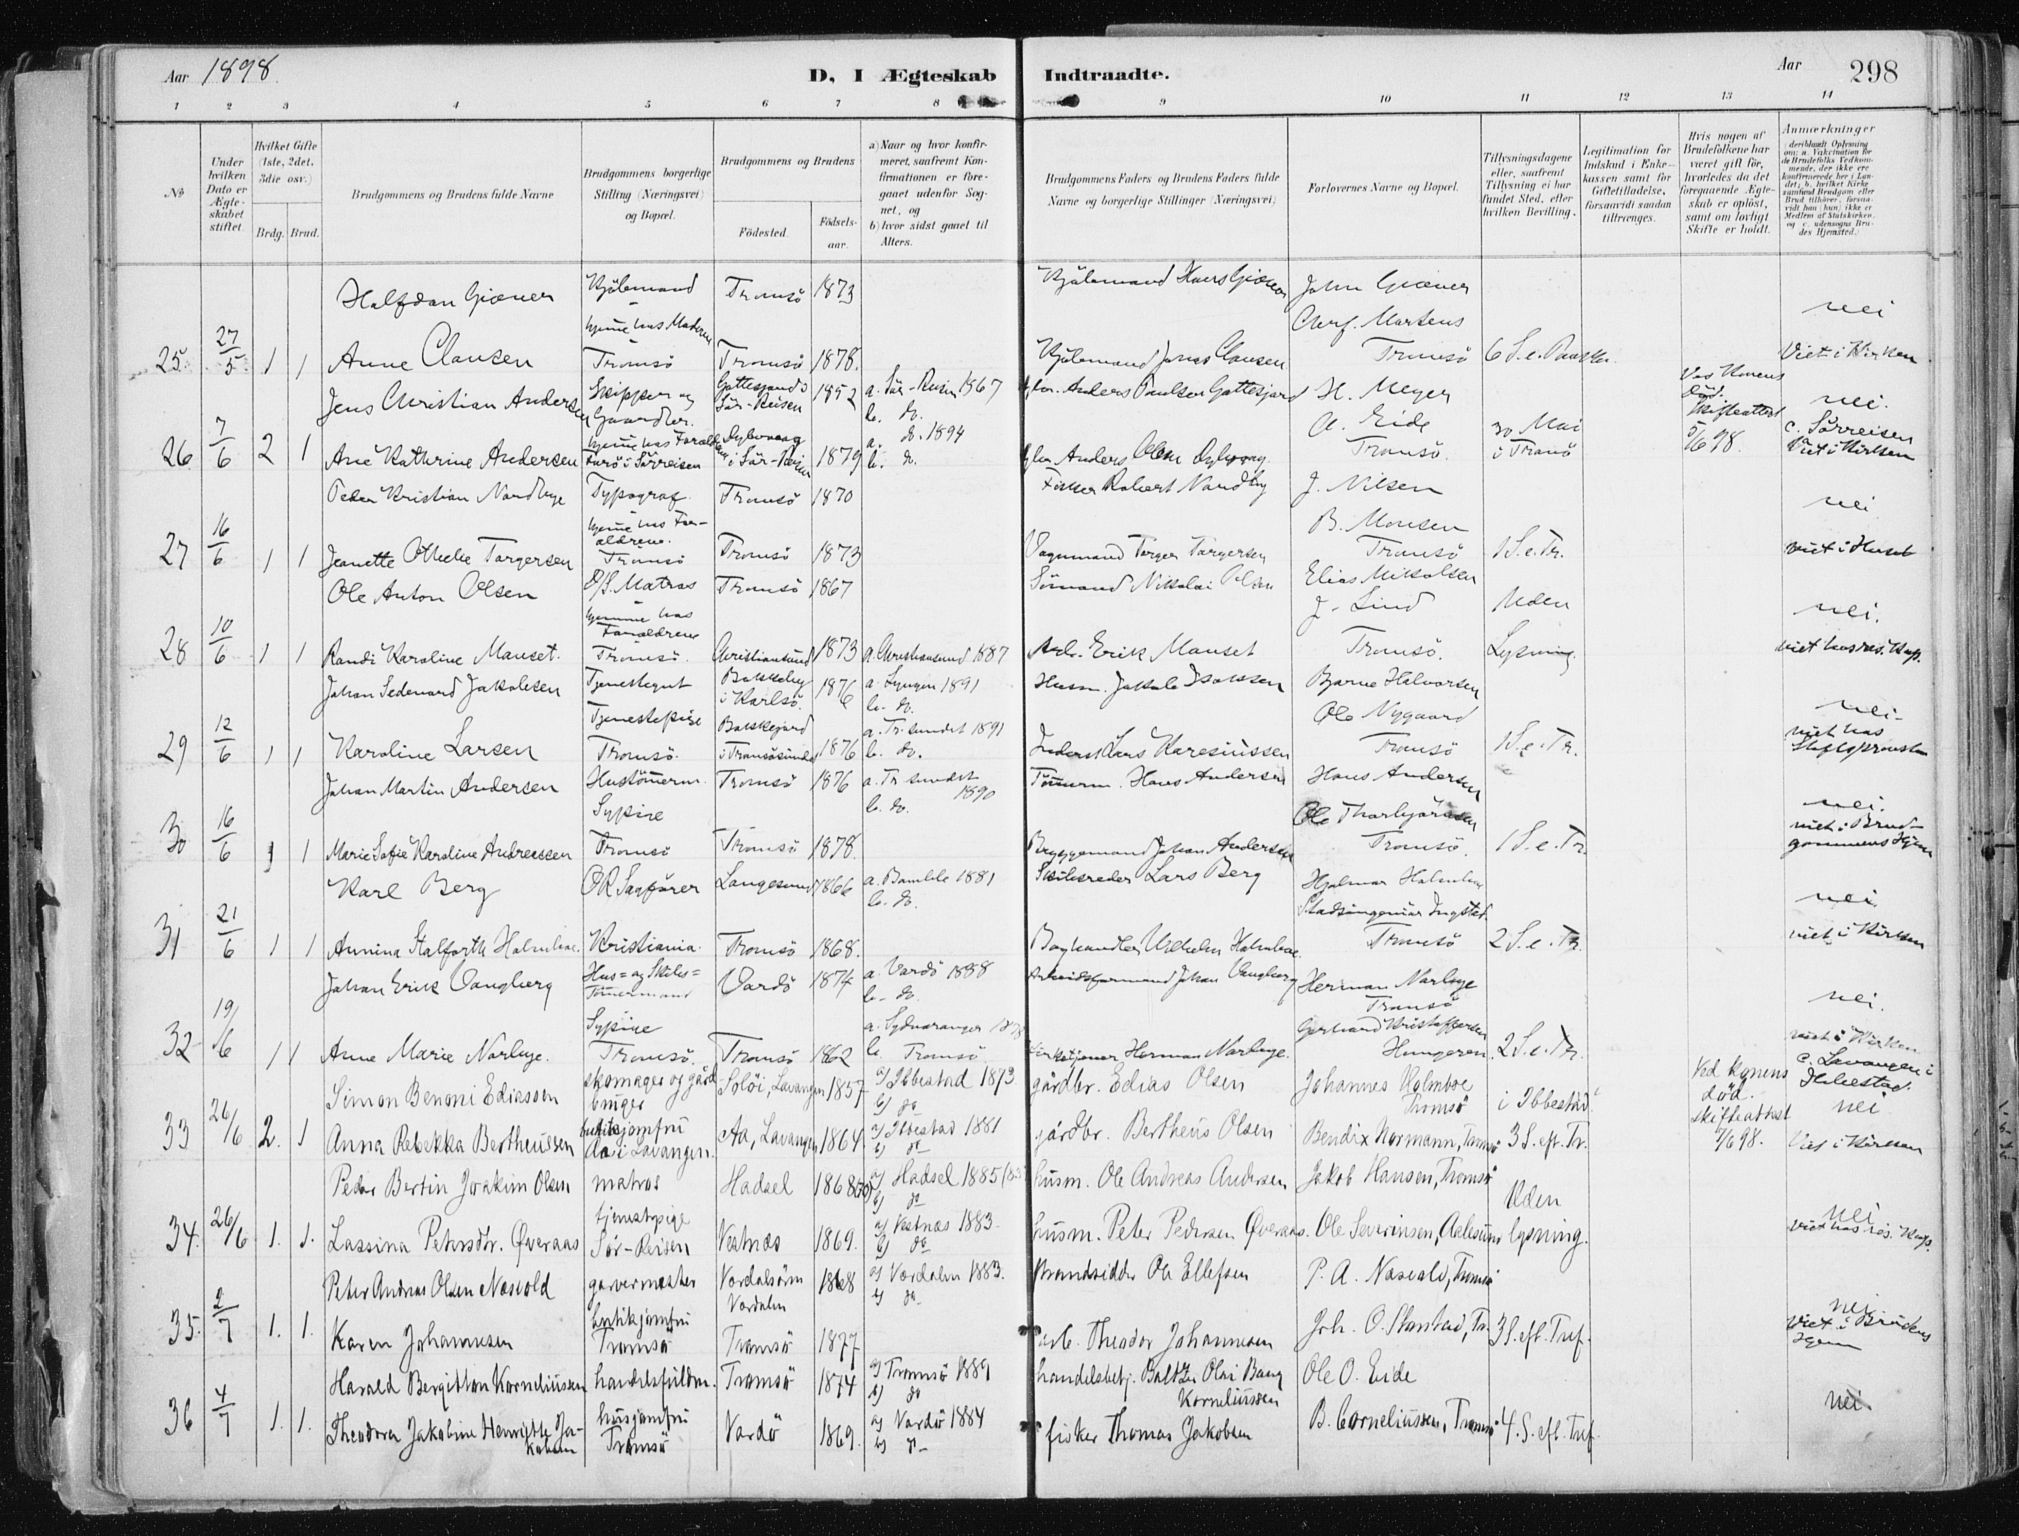 Aar 1898.
D. I Ægteskab Indtraadte.
Aar 298
1 2 3 4 5 6 7 8 9 10 11 12 13 14
No
Under hvilken Dato er Ægteskabet stiftet
Hvilket Gifte (1ste, 2det, 3die osv.)
Brdg. Brud.
Brudgommens og Brudens fulde Navne
Brudgommens borgerlige Stilling (Næringsvei) og Bopæl.
Brudgommens og Brudens
Födested.
Födselsaar.
a) Naar og hvor konfirmeret, saafremt Konfirmationen er foregaaet udenför Sognet, og
b) hvor sidst gaaet til Alters.
Brudgommens Faders og Brudens Faders fulde Navne og borgerlige Stillinger (Næringsvei)
Forlovernes Navne og Bopæl.
Tillysningsdagene eller, saafremt Tillysning ei har fundet Sted, efter hvilken Bevilling.
Legitimation for Indskud i Enkekassen samt for Giftetilladelse, forsaavidt saadan tiltrænges.
Hvis nogen af Brudefolkene har været gift för, hvorledes da det foregaaende Ægteskab er oplöst, samt om lovligt Skifte er holdt.
Anmærkninger
Halfdan Giæver Kjöbmand Tromsö 1873 Kjöbmand Hans Giæver John Giæver nei
25. 27/5 1 1 Anne Clausen hjemme hos Moderen Tromsö Tromsö 1878. Kjöbmand Jonas Clausen Chrf. Martens Tromsö 6 S. e. Paaske Viet i Kirken
Jens Christian Andersen Skipper og Gaardbr. Sör-Reisen 1852 a. Sör-Reisen 1867 b. do. Anders Paulsen Gottesjord H. Meyer Ved Konens Död. nei.
26 7/6 2 1 Ane Kathrine Andersen i Sörreisen i Sör-Reisen 1879 a. do. 1894 b. do. Anders Olsen A. Eide Tromsö. 30 Mai i Tranö Skifteattest 5/6 98. c. Sörreisen Viet i Kirken
Peder Kristian Nordbye Typograf. Tromsö 1870 Fisker Robert Nordby J. Nilsen nei.
27 16/6 1 1 Jeanette Othelie Torgersen hjemme hos Forældrene. Tromsö Tromsö 1873 Vognmand Torger Torgersen B. Monsen Tromsö 1 S. e. Tr. viet i Huset
Ole Anton Olsen D/S. Matros Tromsö 1867 Sömand Nikolai Olsen Elias Mikalsen nei.
28 10/6 1 1 Randi Karoline Manset. hjemme hos Forældrene Tromsö. Christiansund 1873 a. Christiansund 1887 Arb. Erik Manset J. Lind Tromsö. Uden Lysning. viet hos res. Kap.
Johan Jakobsen Tjenestegut i Karlsö. 1876 a. Lyngen 1891 b. do. Husm. Jakob Isaksen Bjarne Halvorsen nei.
29 12/6 1 1 Karoline Larsen Tjenestepige Tromsö. i Tromsösundet 1876 a. Tr.sundet 1891 b. do. Inderst Lars Ole Nygaard Tromsö 1 S. e. Tr. viet hos Stiftsprovsten
Johan Martin Andersen Hustömmerm. Tromsö 1876 a. Tr.sundet 1890 b. do. Tömmerm. Hans Andersen Hans Andersen nei.
30 16/6 1 1 Marie Sofie Karoline Andreassen Sypige Tromsö Tromsö 1878. Bryggemand Johan Andersen Ole Thorbjörnsen Tromsö. 1 S. e. Tr. viet i Brudgommens Hjem
Karl Berg OR Sagförer Langesund 1866 a. Bamble 1881 b. do. Skibsreder Lars Berg Hjalmar Holmboe nei.
31 21/6 1 1 Annina Stalforth Holmboe. Kristiania. Tromsö 1868. Boghandler Vilhelm Holmboe Stadsingeniör Ingstad. Tromsö 2 S. e. Tr. viet i Kirken
Johan Erik Vangberg Hus= og Skibs=Tömmermand Vardö 1874 a. Vardö 1888 b. do. Arbeidsformand Johan Vangberg Herman Norbye Tromsö nei.
32 19/6 1 1 Anne Marie Norbye. Sypige Tromsö. Tromsö 1862 a. Sydvaranger b. Tromsö. Herman Norbye. Gerhard Kristoffersen 2 S. e. Tr. viet i Kirken
Simon Benoni Ediassen skomager og gårdbruger Solöi, Lavangen 1857. a) Ibbestad 1873. b) do gårdbr. Edias Olsen Johannes Holmboe Tromsö i Ibbestad. Ved Konens död. c. Lavangen i Ibbestad. nei
33 26/6 2. 1 Anna Rebekka Bertheussen butikjomfru Aa i Lavangen. Aa, Lavangen 1864. a) Ibbestad 1881 b) do gårdbr. Bertheus Olsen Bendix Normann, Tromsö 3 S. eft. Tr. skifteattest 7/6 98. Viet i Kirken
Peder Bertin Joakim Olsen matros Hadsel 1868 a) Hadsel 1885 b) do husm. Ole Andreas Andersen Jakob Hansen, Tromsö
34. 26/6 1. 1. Lassina Petersdr. Överaas tjenestepige Sör-Reisen Vestnæs 1869. a) Vestnæs 1883. b) do husm. Peter Pedersen Överaas. Ole Severinsen, Aalesund Uden lysning. nei viet hos res. Kap.
Peter Andreas Olsen Næsvold garvermester Værdalsören Værdalen 1868 a) Værdalen 1883. b) do. Strandsidder Ole Ellefsen P. A. Næsvold, Tromsö
35. 2/7 1. 1. Karen Johannesen butikjomfru Tromsö Tromsö 1877 arb. Theodor Johannesen Joh. O. Stenstad, Tr. 3 S. eft. Tref. nei viet i Brudens Hjem
Harald Bergitton Korneliussen handelsfuldm. Tromsö 1874 a) Tromsö 1889 b) do handelsbetj. Baltzer Olai Bang Korneliussen Ole O. Eide
36 4/7 1. 1. Theodora Jakobine Henriette Jakobsen husjomfru Tromsö Vardö 1869. a) Vardö 1884 b) do fisker Thomas Jakobsen B. Corneliussen, Tromsö 4. S. eft. Tref. nei